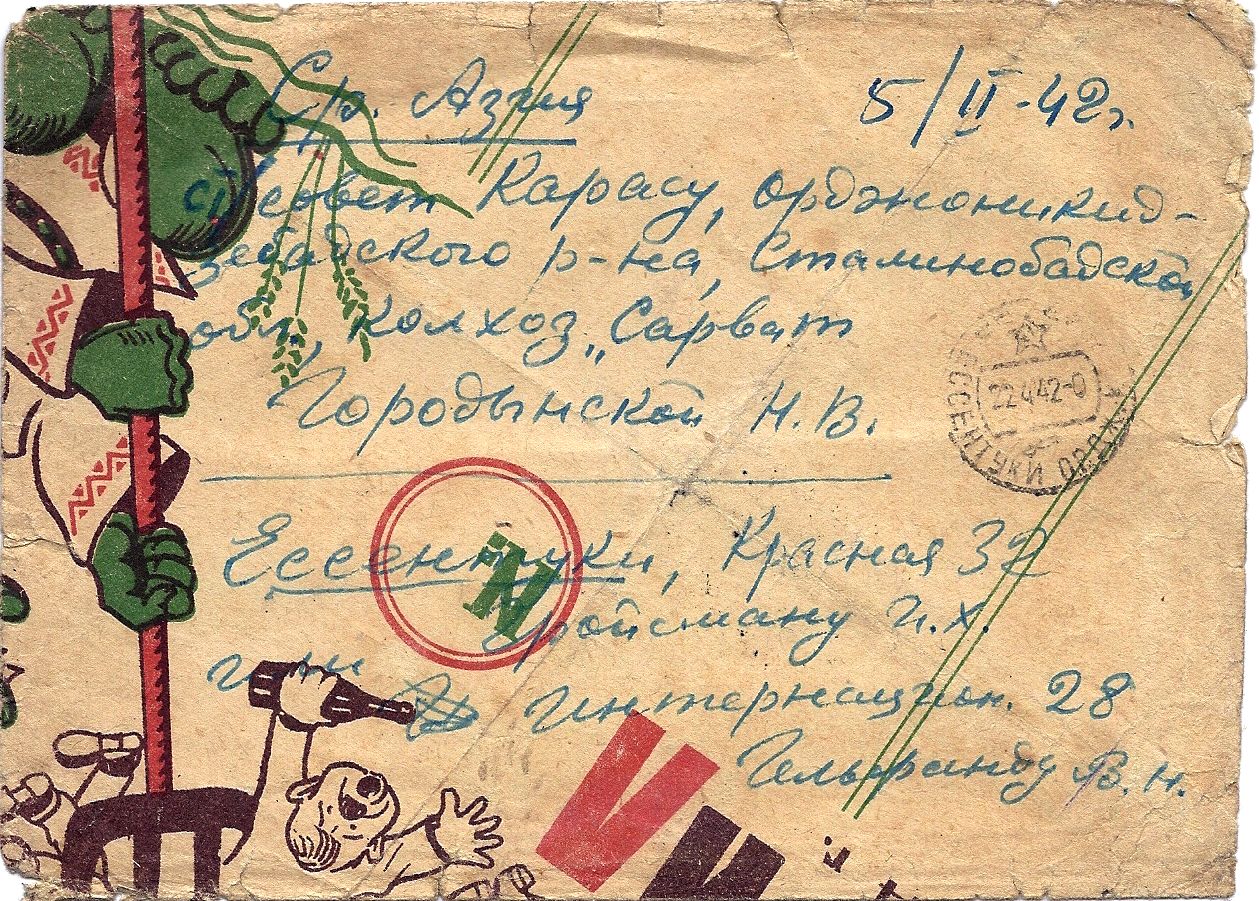 Ср. Азия
5/II-42г.
с/совет Карасу, орджоникид-
зебадского р-на, Сталинобадской
обл, колхоз „Сарват
Городынской Н. В.
Ессентуки, Красная 32
Ройсману И. Х.
или Интернацион. 28
Гельфанду В. Н.
22 4 42-0
ЕССЕНТУКИ ОРДЖ
Й